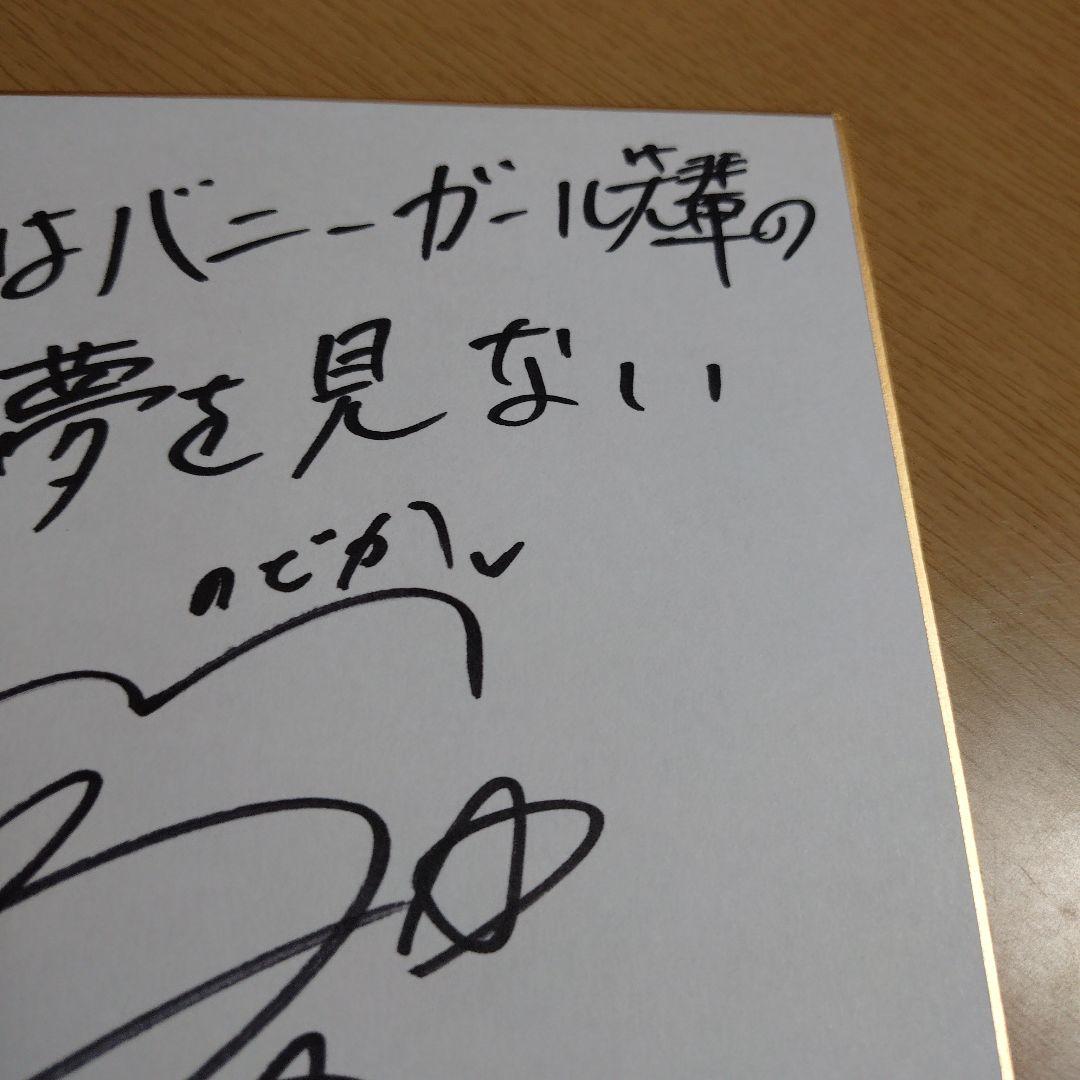 はバニーガール先輩の
夢を見ない
のどか